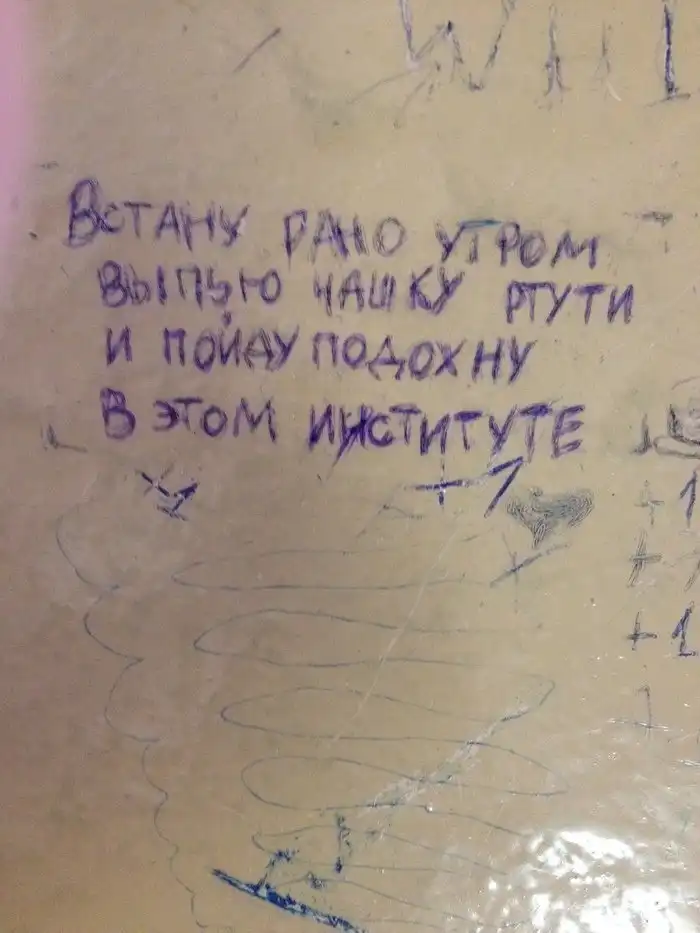 Встану рано утром
выпью чашку ртути
и пойду подохну
в этом институте
+1
+1
+1